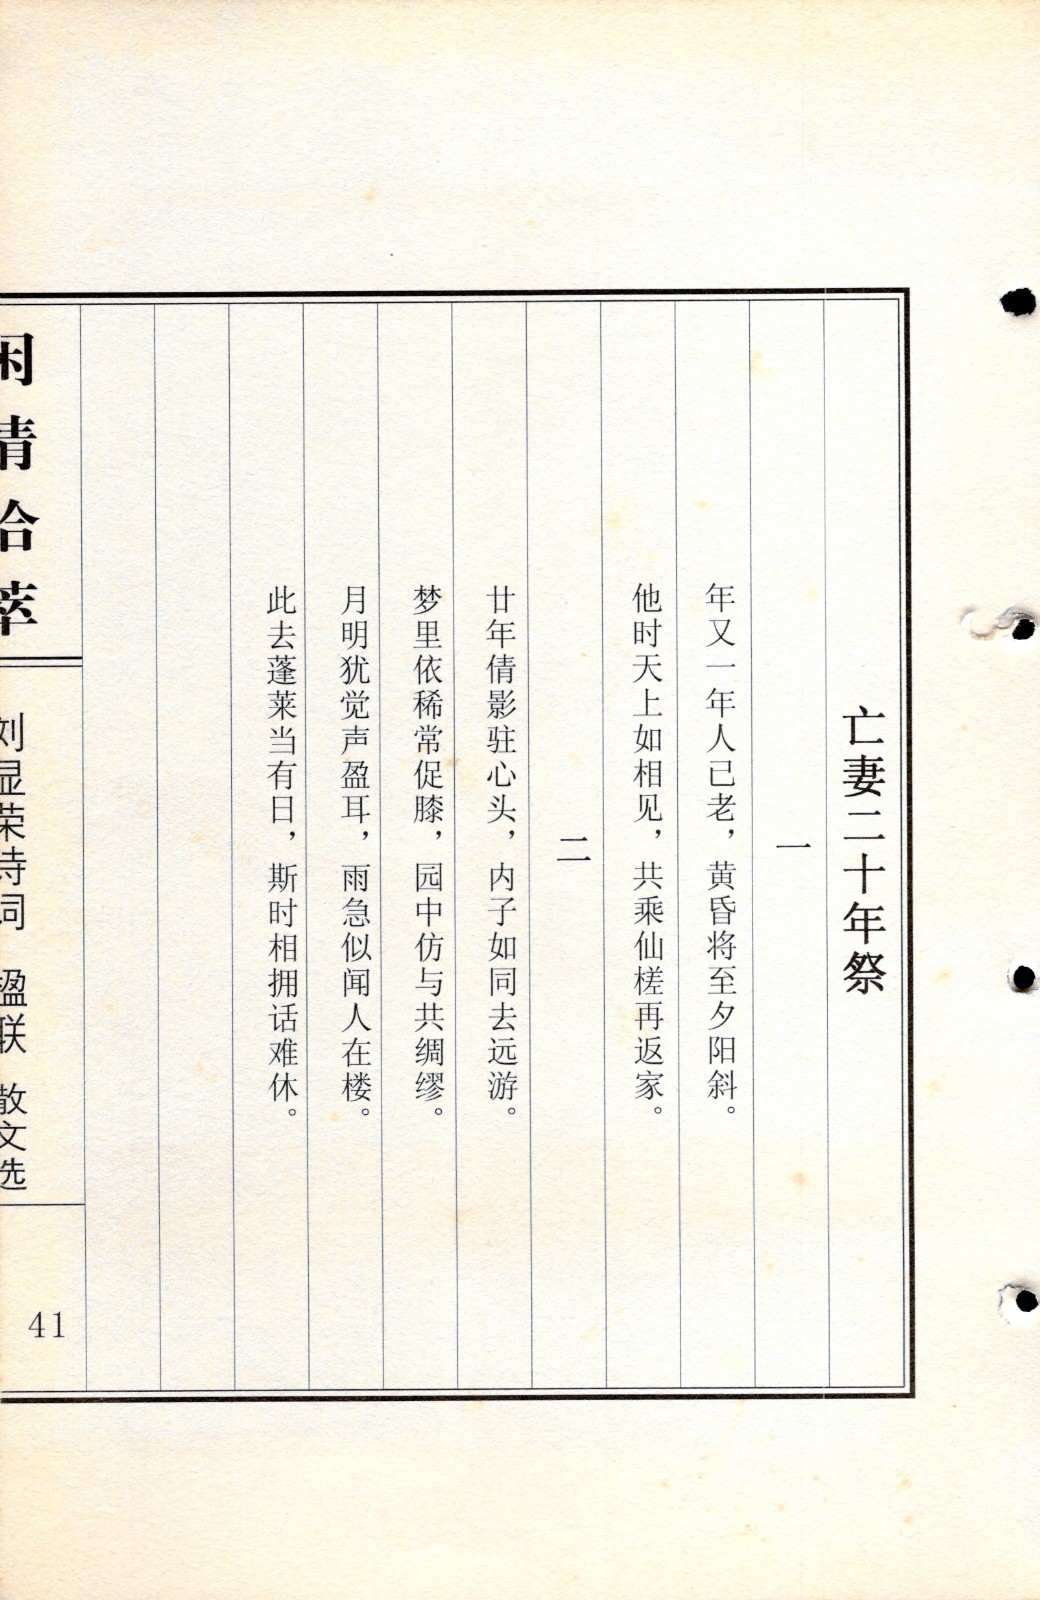 亡妻二十年祭
一
年又一年人已老，黄昏将至夕阳斜。
他时天上如相见，共乘仙槎再返家。
二
廿年倩影驻心头，内子如同去远游。
梦里依稀常促膝，园中仿与共绸缪。
月明犹觉声盈耳，雨急似闻人在楼。
此去蓬莱当有日，斯时相拥话难休。
闲情拾萃
刘显荣诗词 楹联 散文选
41